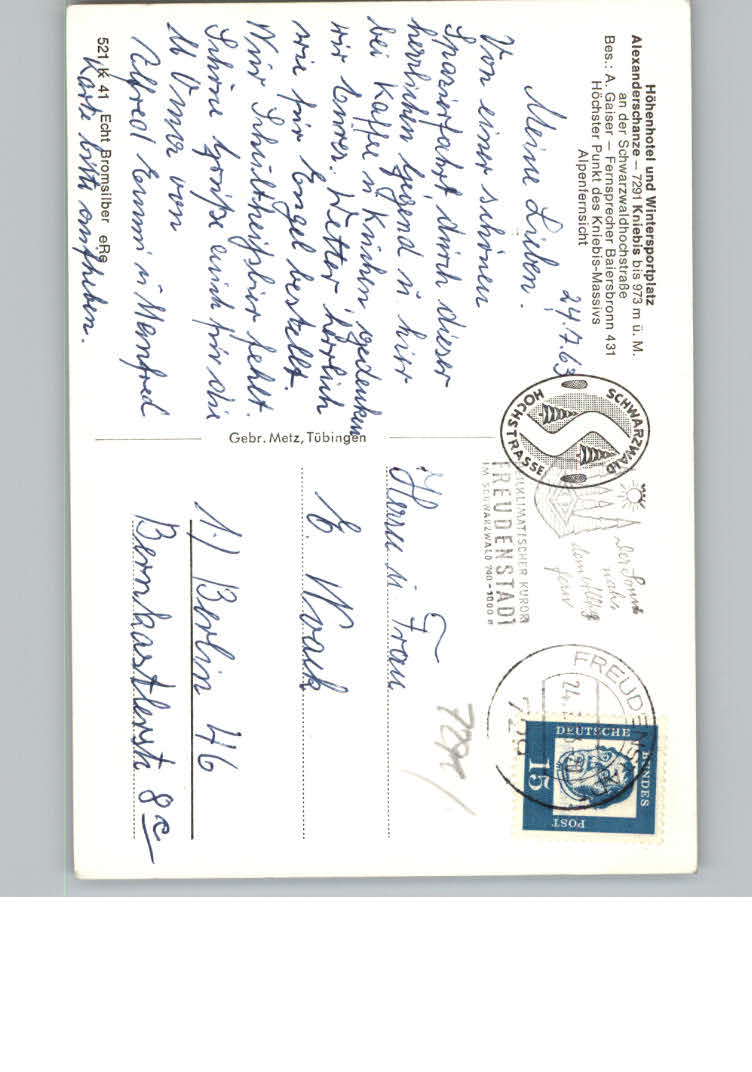 Höhenhotel und Wintersportplatz
Alexanderschanze — 7291 Kniebis bis 973 m ü. M.
an der Schwarzwaldhochstraße
Bes.: A. Gaiser — Fernsprecher Baiersbronn 431
Höchster Punkt des Kniebis-Massivs
Alpenfernsicht
24.7.63
Meine Lieben.
Von einer schönen
Spazierfahrt durch dieser
herrlichen Gegend u. hier
bei Kaffee u. Kuchen gedenken
wir Eurer. Wetter herrlich
wie für Engel bestellt.
Nur Schultheißbier fehlt.
Schöne Grüße auch für die
M Oma von
Alfred Emmi u Manfred
Karte bitte aufheben.
521 K 41 Echt Bromsilber eRe
Gebr. Metz, Tübingen
SCHWARZWALD
HOCHSTRASSE
Der Sonne
nahe
dem Alltag
fern
HEILKLIMATISCHER KURORT
FREUDENSTADT
IM SCHWARZWALD 740-1000 m
FREUDENSTADT
24.
729
DEUTSCHE
BUNDES
POST
15
Herrn u. Frau
E. Noack
1.) Berlin 46
Bernkastlerstr 8c